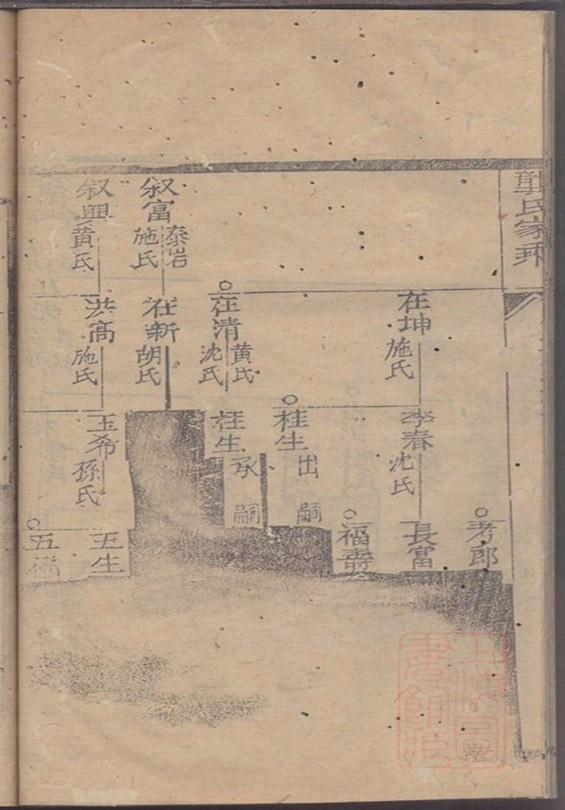 龔氏家乘
在坤
施氏
李春
沈氏
考郎
長富
福壽
在清
黄氏
沈氏
桂生
出嗣
桂生
承嗣
叙富
泰岩
施氏
在新
胡氏
叙興
黄氏
洪高
施氏
玉希
孫氏
五生
五福